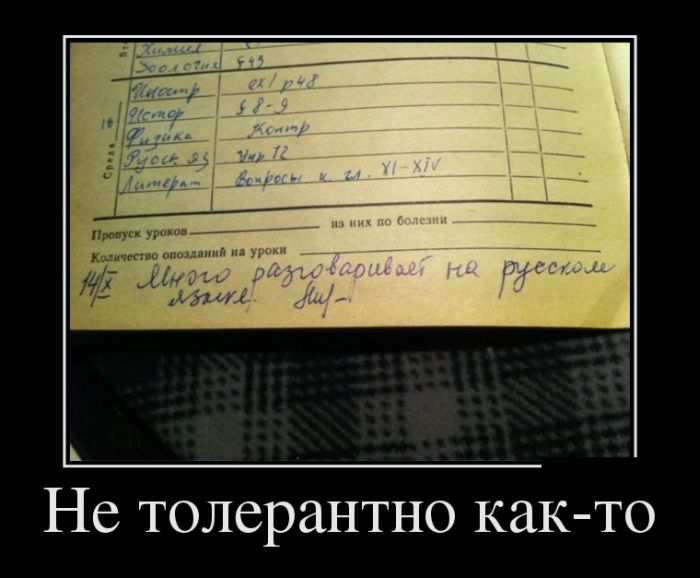 Химия
Зоология § 49
Иностр ех / р 48
Истор § 8-9
Физика Контр
Русск яз Упр 72
Литерат Вопросы к гл. XI-XIV
Среда 16
Пропуск уроков из них по болезни
Количество опозданий на уроки
14/X Много разговаривает на русском
языке.
Не толерантно как-то